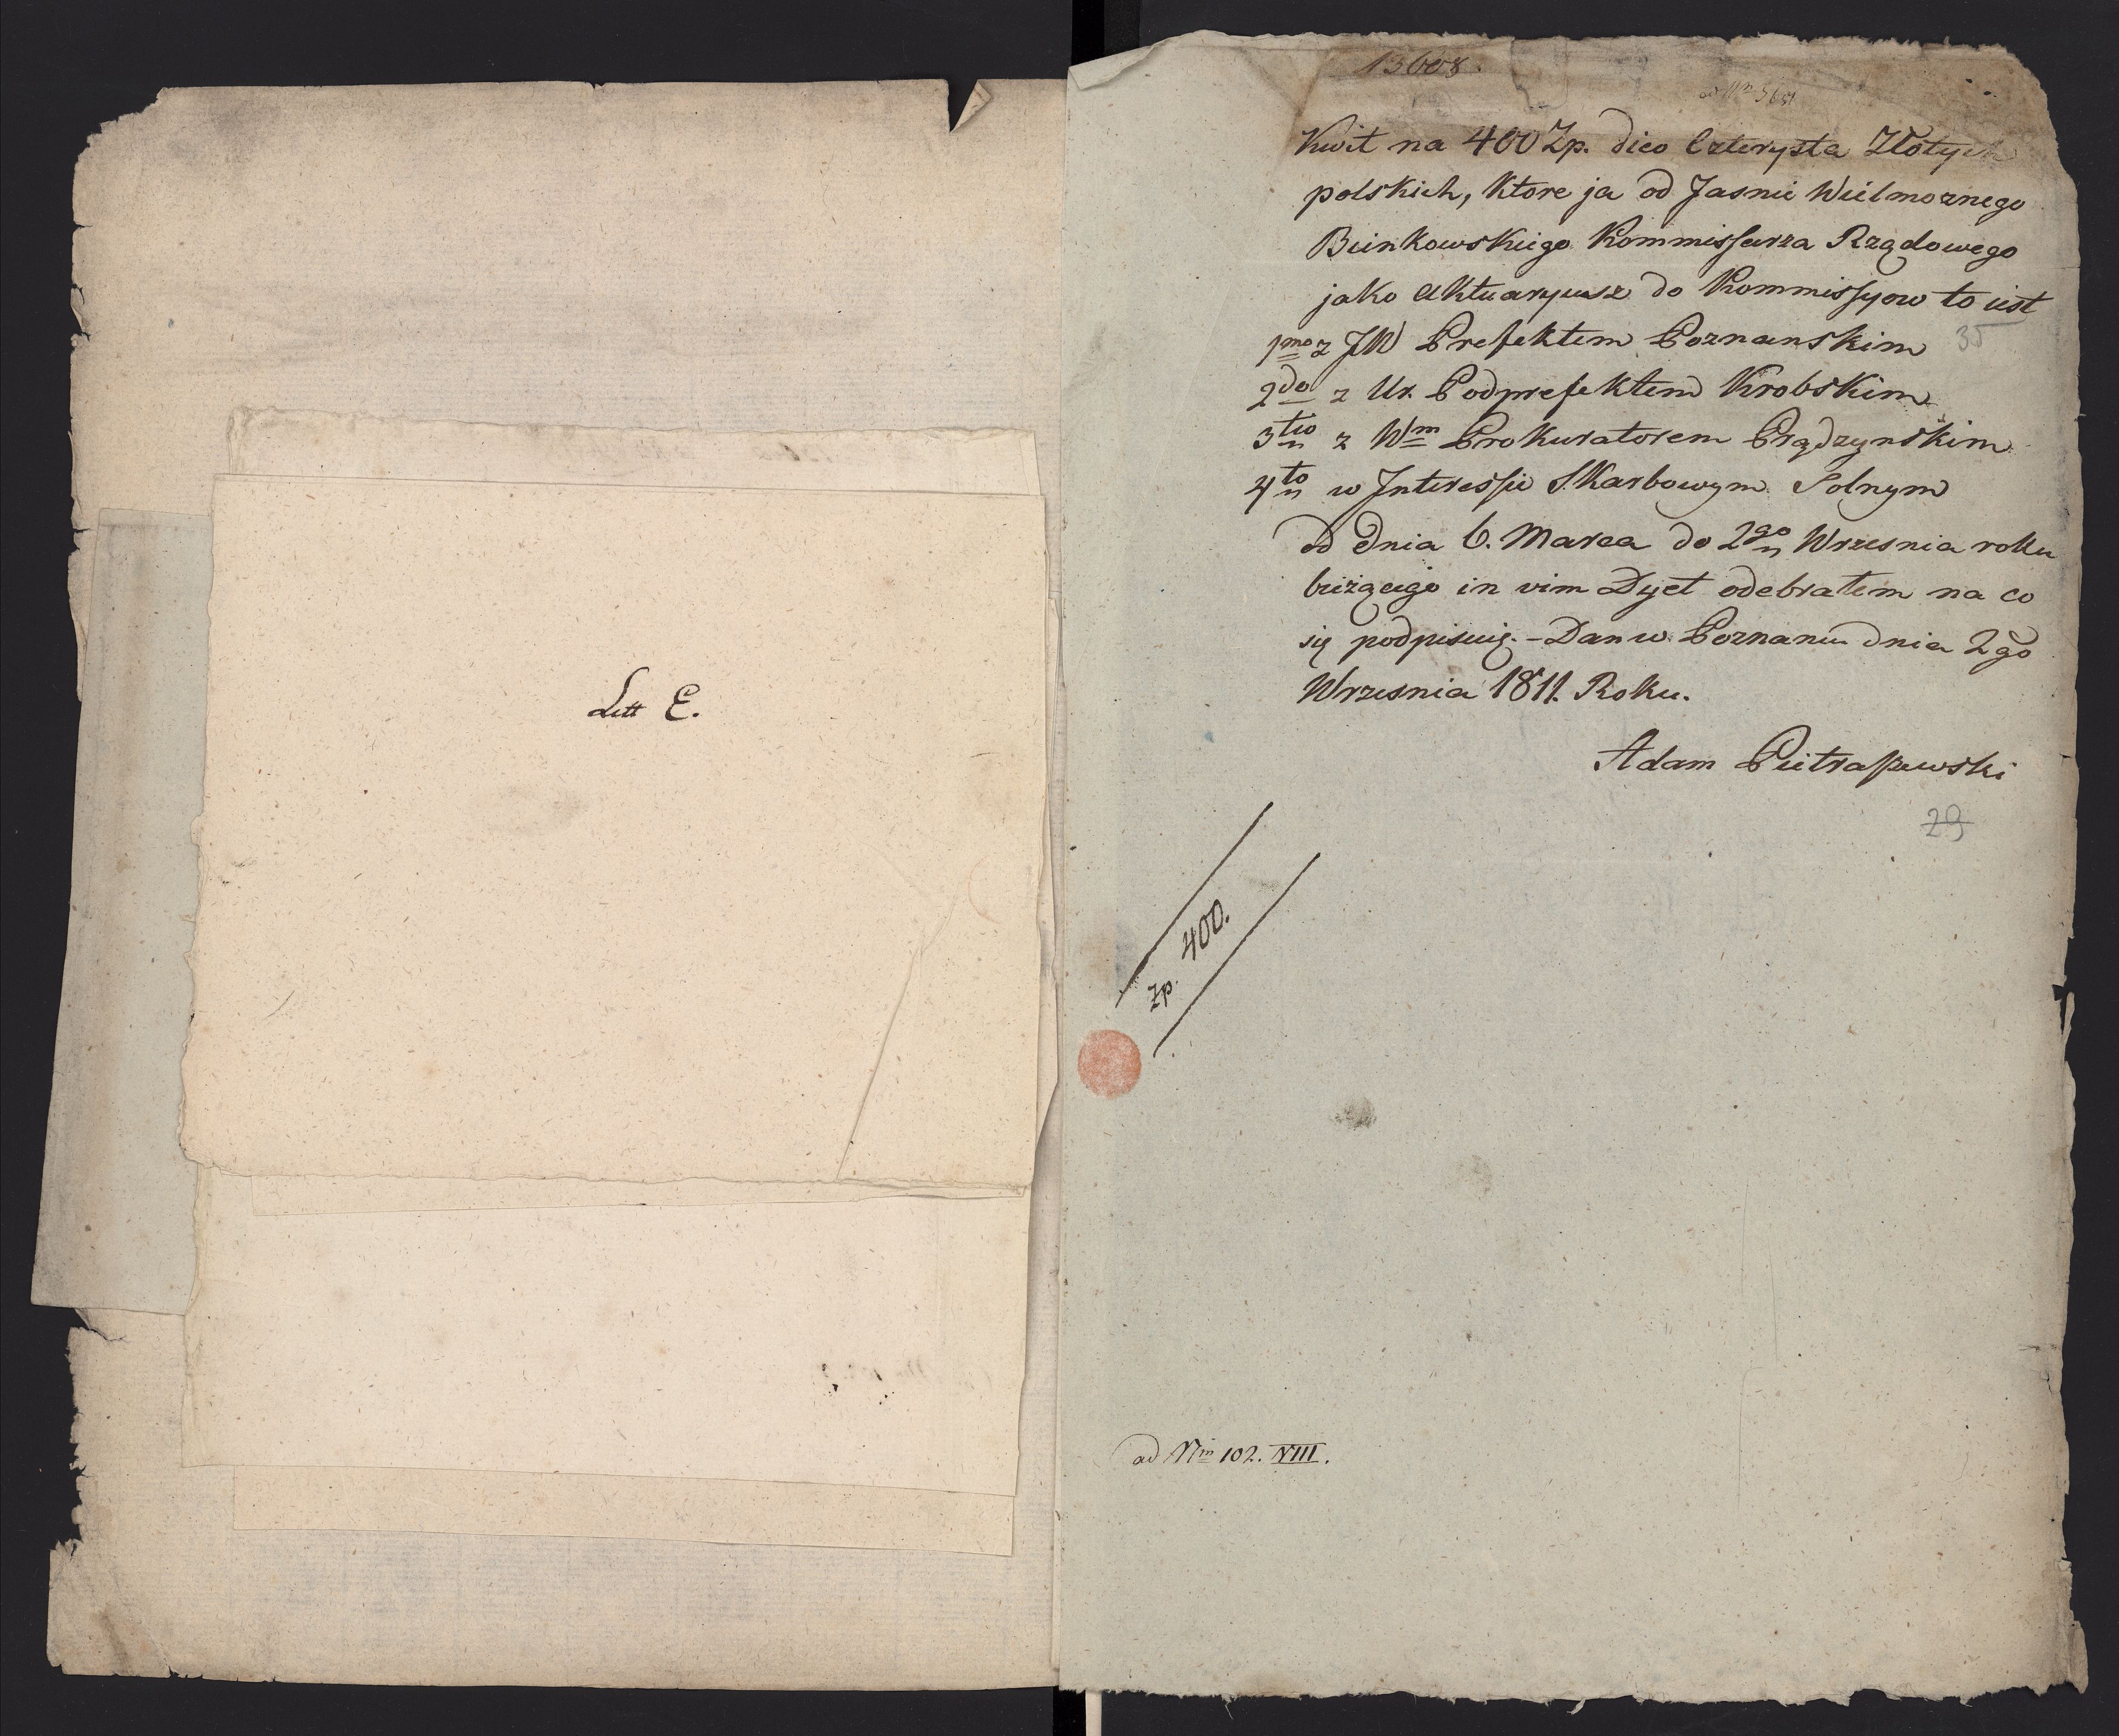 Litt E.
13608.
Kwit na 400 Zp. dico Czterysta Złotych
polskich, ktore ja od Jasnie Wielmoznego
Bienkowskiego Kommissarza Rządowego
jako Aktuaryusz do Kommissyow to iest
1mo z JW Prefektem Poznanskim
35
2do z Ur. Podprefektem Krobskim
3tio z Wm Prokuratorem Prądzynskim
4to w Interessie Skarbowym Solnym
od dnia 6. Marca do 2go Wrzesnia roku
bieżącego in vim Dyet odebrałem na co
się podpisuię. – Dan w Poznaniu dnia 2go
Wrzesnia 1811. Roku.
Adam Pietraszewski
29
Zp. 400.
ad Nm 102. VIII.